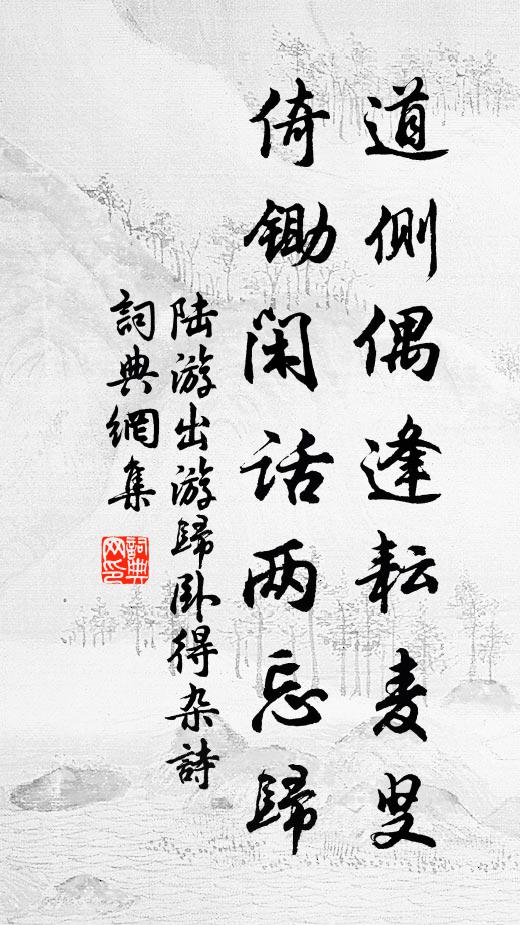 道侧偶逢耘麦叟
倚锄闲话两忘歸
陆游出游歸卧得杂詩
詞典網集
詞典
网印